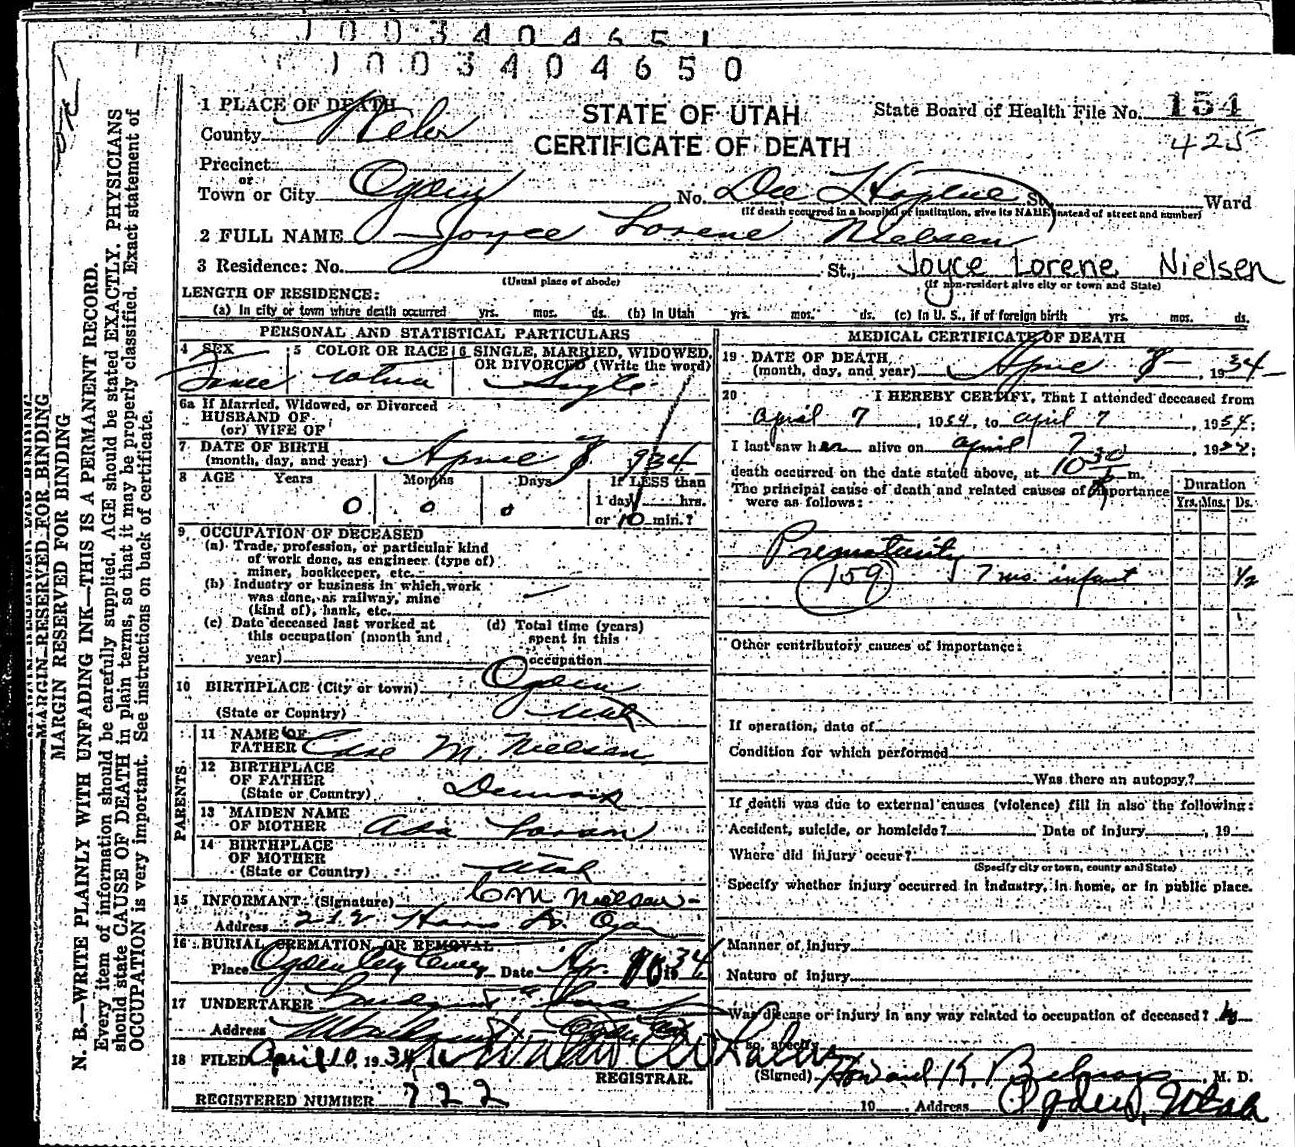 1003404651
1003404650
1 PLACE OF DEATH
County Weber
STATE OF UTAH
CERTIFICATE OF DEATH
State Board of Health File No. 154
425
Precinct
or
Town or City Ogden No. Dee St. Ward
(If death occurred in a hospital or institution, give its NAME instead of street and number)
2 FULL NAME Joyce Lorene Nielsen
3 Residence: No. St., Joyce Lorene Nielsen
(Usual place of abode) (If non-resident give city or town and State)
LENGTH OF RESIDENCE:
(a) In city or town where death occurred yrs. mos. ds. (b) In Utah yrs. mos. ds. (c) In U. S., if of foreign birth yrs. mos. ds.
PERSONAL AND STATISTICAL PARTICULARS
4 SEX 5 COLOR OR RACE 6 SINGLE, MARRIED, WIDOWED, OR DIVORCED (Write the word)
Single
6a If Married, Widowed, or Divorced
HUSBAND OF
(or) WIFE OF
7 DATE OF BIRTH
(month, day, and year) April 8 1934
8 AGE Years Months Days If LESS than
0 0 0 1 day hrs.
or 10 min.?
9 OCCUPATION OF DECEASED
(a) Trade, profession, or particular kind
of work done, as engineer (type of)
miner, bookkeeper, etc.
(b) Industry or business in which work
was done, as railway, mine
(kind of), bank, etc.
(c) Date deceased last worked at
this occupation (month and
year)
(d) Total time (years)
spent in this
occupation
10 BIRTHPLACE (City or town) Ogden
(State or Country) Utah
PARENTS
11 NAME OF
FATHER M. Nielsen
12 BIRTHPLACE
OF FATHER
(State or Country) Denmark
13 MAIDEN NAME
OF MOTHER Ada
14 BIRTHPLACE
OF MOTHER
(State or Country) Utah
15 INFORMANT (Signature) C M Nielsen
Address
16 BURIAL, CREMATION, OR REMOVAL
Place Ogden City Date Apr. 10 1934
17 UNDERTAKER
Address
18 FILED April 10, 1934
REGISTRAR.
REGISTERED NUMBER 222
MEDICAL CERTIFICATE OF DEATH
19 DATE OF DEATH
(month, day, and year) April 8, 1934
20 I HEREBY CERTIFY, That I attended deceased from
April 7, 1934, to April 7, 1934;
I last saw her alive on April 7, 1934;
death occurred on the date stated above, at 10 30 P m.
The principal cause of death and related causes of importance
were as follows:
Duration
Yrs. Mos. Ds.
Prematurity
159 7 mo. infant 1/2
Other contributory causes of importance:
If operation, date of
Condition for which performed
Was there an autopsy?
If death was due to external causes (violence) fill in also the following:
Accident, suicide, or homicide? Date of injury , 19
Where did injury occur?
(Specify city or town, county and State)
Specify whether injury occurred in industry, in home, or in public place.
Manner of injury
Nature of injury
Was disease or injury in any way related to occupation of deceased? No
If so, specify
(Signed) Howard K. M. D.
19 Address Ogden, Utah
MARGIN RESERVED FOR BINDING
MARGIN RESERVED FOR BINDING
N. B.—WRITE PLAINLY WITH UNFADING INK—THIS IS A PERMANENT RECORD.
Every item of information should be carefully supplied. AGE should be stated EXACTLY. PHYSICIANS
should state CAUSE OF DEATH in plain terms, so that it may be properly classified. Exact statement of
OCCUPATION is very important. See instructions on back of certificate.